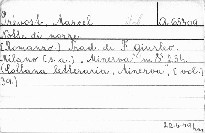 Prévost, Marcel A 65309
Notte di nozze.
(Romanzo.) Trad. de P. Giusteo.
Milano (s. a.), "Minerva" m. 8° 254.
(Collana letteraria, Minerva, (vol.)
39.)